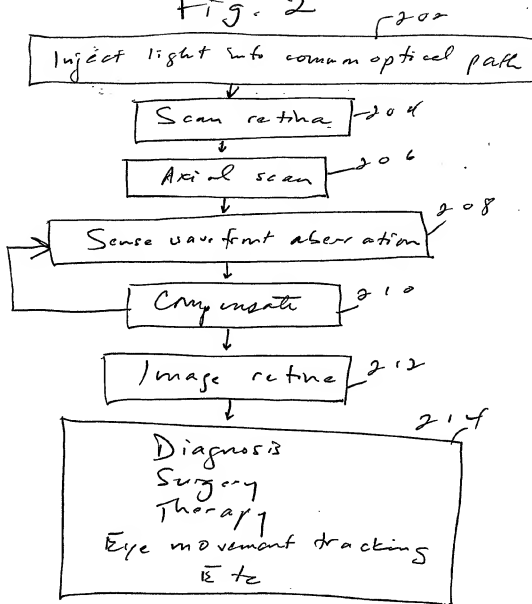 Fig. 2
202
Inject light into common optical path
Scan retina 204
Axial scan 206
208
Sense wavefront aberration
Compensate 210
Image retina 212
214
Diagnosis
Surgery
Therapy
Eye movement tracking
Etc